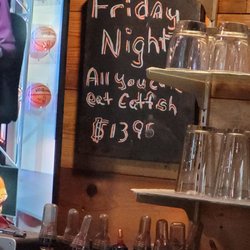 Friday
Night
All you can
eat Catfish
$13.96